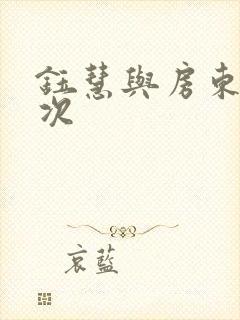 鈺慧與房東
次
哀藍